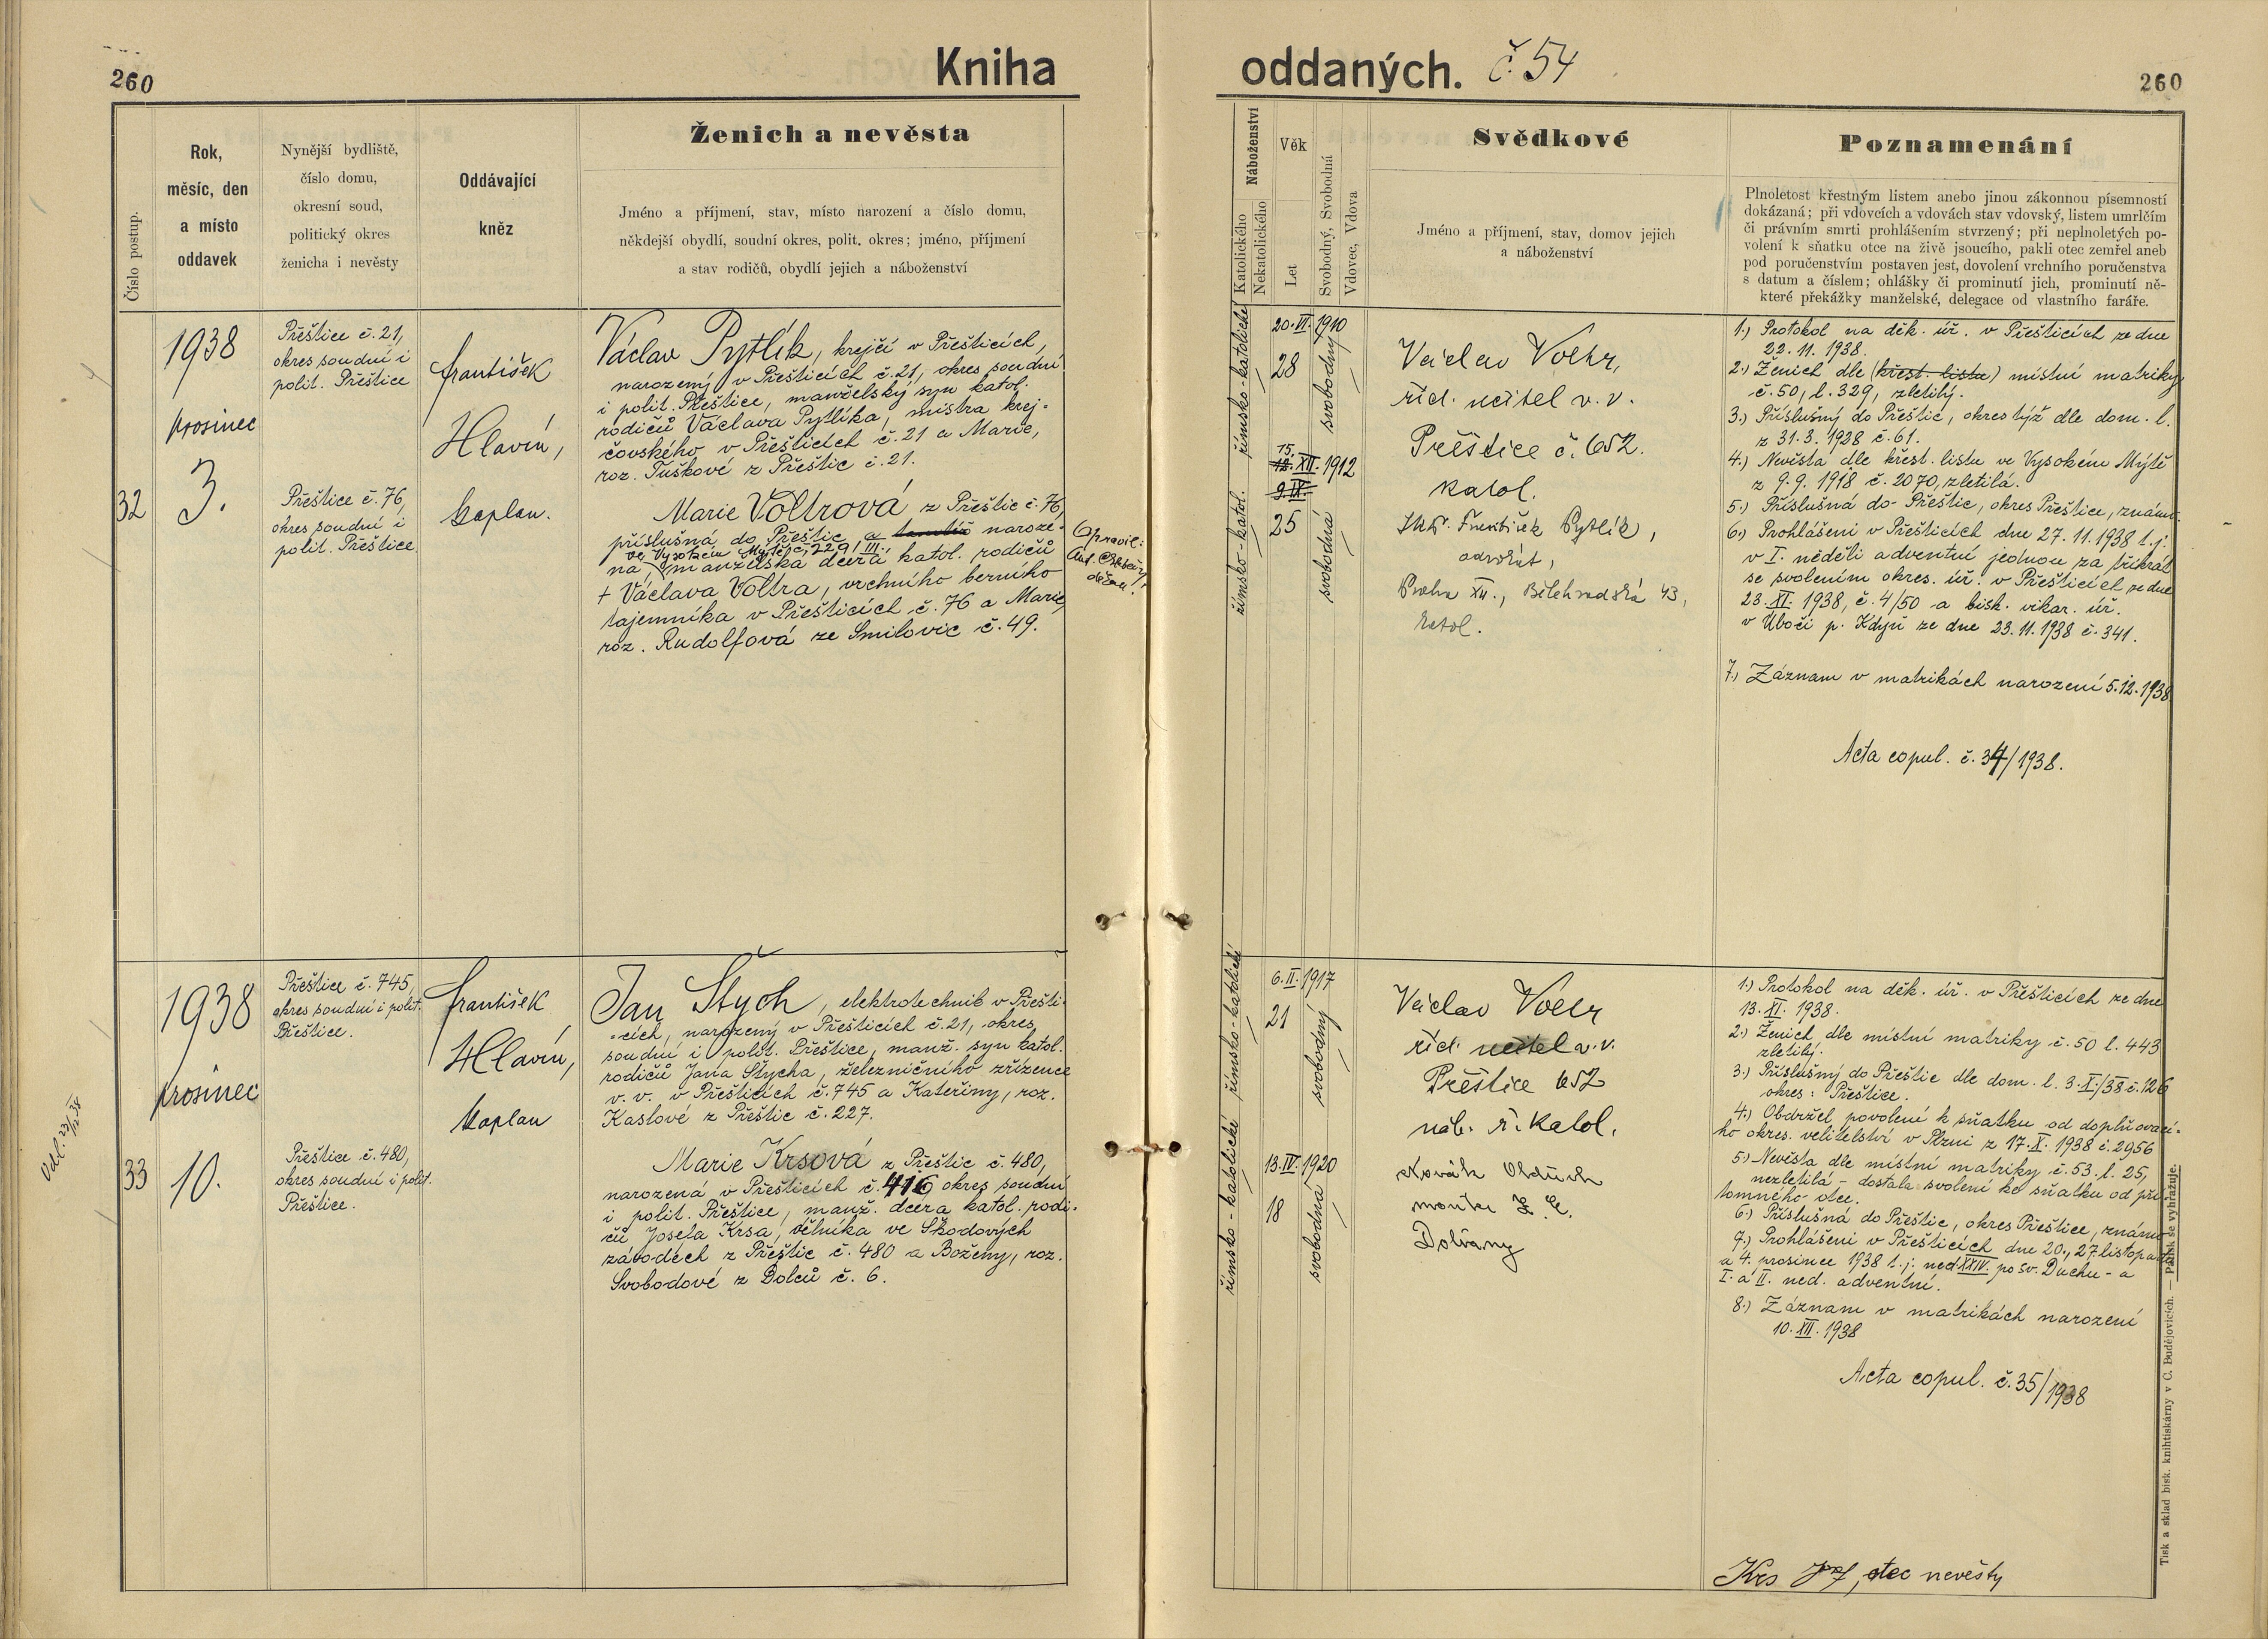 260
Kniha
oddaných. č. 54
260
Číslo postup.
Rok,
měsíc, den
a místo
oddavek
Nynější bydliště,
číslo domu,
okresní soud,
politický okres
ženicha i nevěsty
Oddávající
kněz
Ženich a nevěsta
Jméno a příjmení, stav, místo narození a číslo domu,
někdejší obydlí, soudní okres, polit. okres; jméno, příjmení
a stav rodičů, obydlí jejich a náboženství
Náboženství
Katolického
Nekatolického
Věk
Let
Svobodný, Svobodná
Vdovec, Vdova
Svědkové
Jméno a příjmení, stav, domov jejich
a náboženství
Poznamenání
Plnoletost křestným listem anebo jinou zákonnou písemností
dokázaná; při vdovcích a vdovách stav vdovský, listem umrlčím
či právním smrti prohlášením stvrzený; při neplnoletých po-
volení k sňatku otce na živě jsoucího, pakli otec zemřel aneb
pod poručenstvím postaven jest, dovolení vrchního poručenstva
s datum a číslem; ohlášky či prominutí jich, prominutí ně-
které překážky manželské, delegace od vlastního faráře.
32
1938
prosinec
3.
Přeštice č. 21,
okres soudní i
polit. Přeštice
Přeštice č. 76,
okres soudní i
polit. Přeštice
František
Hlavín,
kaplan.
Václav Pytlík, krejčí v Přešticích,
narozený v Přešticích č. 21, okres soudní
i polit. Přeštice, manželský syn katol.
rodičů Václava Pytlíka, mistra krej-
čovského v Přešticích č. 21 a Marie,
roz. Tuškové z Přeštic č. 21.
Marie Voltrová z Přeštic č. 76,
příslušná do Přeštic a tamtéž naroze-
ve Vysokém Mýtě č. 229/III.,
na, manželská dcera katol. rodičů
+ Václava Voltra, vrchního berního
tajemníka v Přešticích č. 76 a Marie,
roz. Rudolfová ze Smilovic č. 49.
Opravil:
Ant.
děkan.
římsko-katolické
římsko-katol.
20. VI. 1910
28
svobodný
15.
12. XII. 1912
9. IX.
25
svobodná
Václav Voltr,
říd. učitel v. v.
Přeštice č. 652.
katol.
JUDr. František Pytlík,
advokát,
Praha XII., Bělehradská 43,
katol.
1.) Protokol na děk. úř. v Přešticích ze dne
22. 11. 1938.
2.) Ženich dle (křest. listu) místní matriky
č. 50, l. 329, zletilý.
3.) Příslušný do Přeštic, okres týž dle dom. l.
z 31. 3. 1928 č. 61.
4.) Nevěsta dle křest. listu ve Vysokém Mýtě
z 9. 9. 1918 č. 2070, zletilá.
5.) Příslušná do Přeštic, okres Přeštice, známa.
6.) Prohlášeni v Přešticích dne 27. 11. 1938 t. j.
v I. neděli adventní jednou za třikrát
se svolením okres. úř. v Přešticích ze dne
23. XI. 1938, č. 4/50 a bisk. vikar. úř.
v Úboči p. Kdyň ze dne 23. 11. 1938 č. 341.
7.) Záznam v matrikách narození 5. 12. 1938
Acta copul. č. 34/1938.
33
1938
prosinec
10.
Přeštice č. 745,
okres soudní i polit.
Přeštice.
Přeštice č. 480,
okres soudní i polit.
Přeštice.
František
Hlavín,
kaplan
Jan Štych, elektrotechnik v Přešti-
cích, narozený v Přešticích č. 21, okres
soudní i polit. Přeštice, manž. syn katol.
rodičů Jana Štycha, železničního zřízence
v. v. v Přešticích č. 745 a Kateřiny, roz.
Kaslové z Přeštic č. 227.
Marie Krsová z Přeštic č. 480,
narozená v Přešticích č. 416 okres soudní
i polit. Přeštice, manž. dcera katol. rodi-
čů Josefa Krsa, dělníka ve Škodových
závodech z Přeštic č. 480 a Boženy, roz.
Svobodové z Dolců č. 6.
římsko-katolické
římsko-katolické
6. II. 1917
21
svobodný
13. IV. 1920
18
svobodná
Václav Voltr
říd. učitel v. v.
Přeštice 652
náb. ř. katol.
Novák Oldřich
Dolvany
1.) Protokol na děk. úř. v Přešticích ze dne
13. XI. 1938.
2.) Ženich dle místní matriky č. 50 l. 443
zletilý.
3.) Příslušný do Přeštic dle dom. l. 3. X./38 č. 126
okres: Přeštice.
4.) Obdržel povolení k sňatku od doplňovací-
ho okres. velitelství v Plzni z 17. X. 1938 č. 2956
5.) Nevěsta dle místní matriky č. 53. l. 25,
nezletilá - dostala svolení ke sňatku od pří-
tomného otce.
6.) Příslušná do Přeštic, okres Přeštice, známa
7.) Prohlášeni v Přešticích dne 20., 27. listopadu
a 4. prosince 1938 t. j. ned. XXIV. po sv. Duchu - a
I. a II. ned. adventní.
8.) Záznam v matrikách narození
10. XII. 1938
Acta copul. č. 35/1938
Krs Josef, otec nevěsty
Tisk a sklad bisk. knihtiskárny v Č. Budějovicích. — Patisk se vyhražuje.